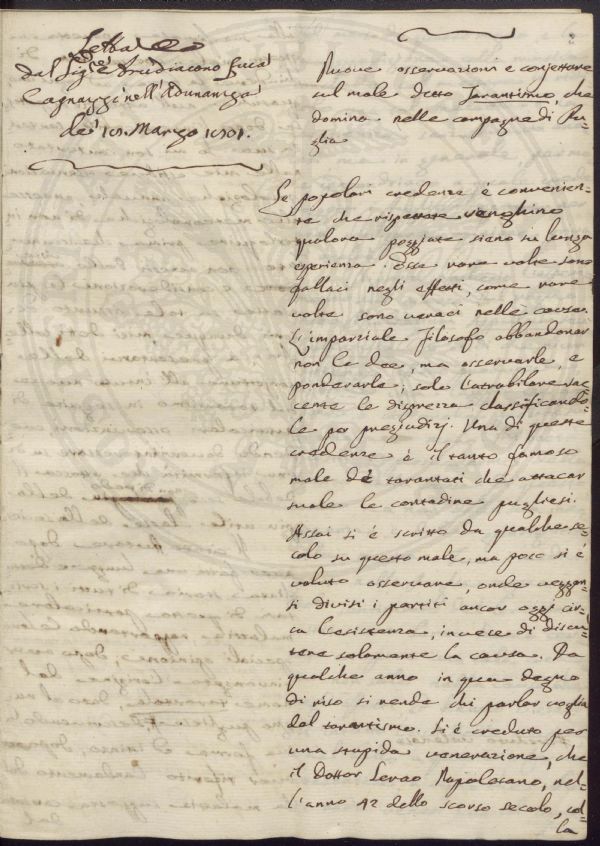 Letta
dal Sig.re Arcidiacono Luca
Cagnazzi nell'Adunanza
de'
Marzo
Nuove osservazioni e conjetture
sul male detto Tarantismo, che
domina nelle campagne di Pu=
glia
Se popolari credenze è convenien=
te che rispettate venghino
qualora poggiate siano su lunga
esperienza. Esse rare volte sono
fallaci negli effetti, come rare
volte sono veraci nelle cause.
L'imparziale Filosofo abbandonar
non le dee, ma osservarle, e
ponderarle; solo l'atrabilare sac=
cente le disprezza classificando=
le per pregiudizj. Una di queste
credenze è il tanto famoso
male de' tarantati che attaccar
suole le contadine pugliesi.
Assai si è scritto da qualche se=
colo su questo male, ma poco si è
voluto osservare, onde veggon=
si divisi i partiti ancor oggi cir=
ca l'esistenza, invece di discu=
tere solamente la causa. Da
qualche anno in qua degno
di riso si rende chi parlar voglia
del tarantismo. Si è creduto per
una stupida venerazione, che
il Dottor Serao Napolitano, nel=
l'anno 42 dello scorso secolo, col=
la